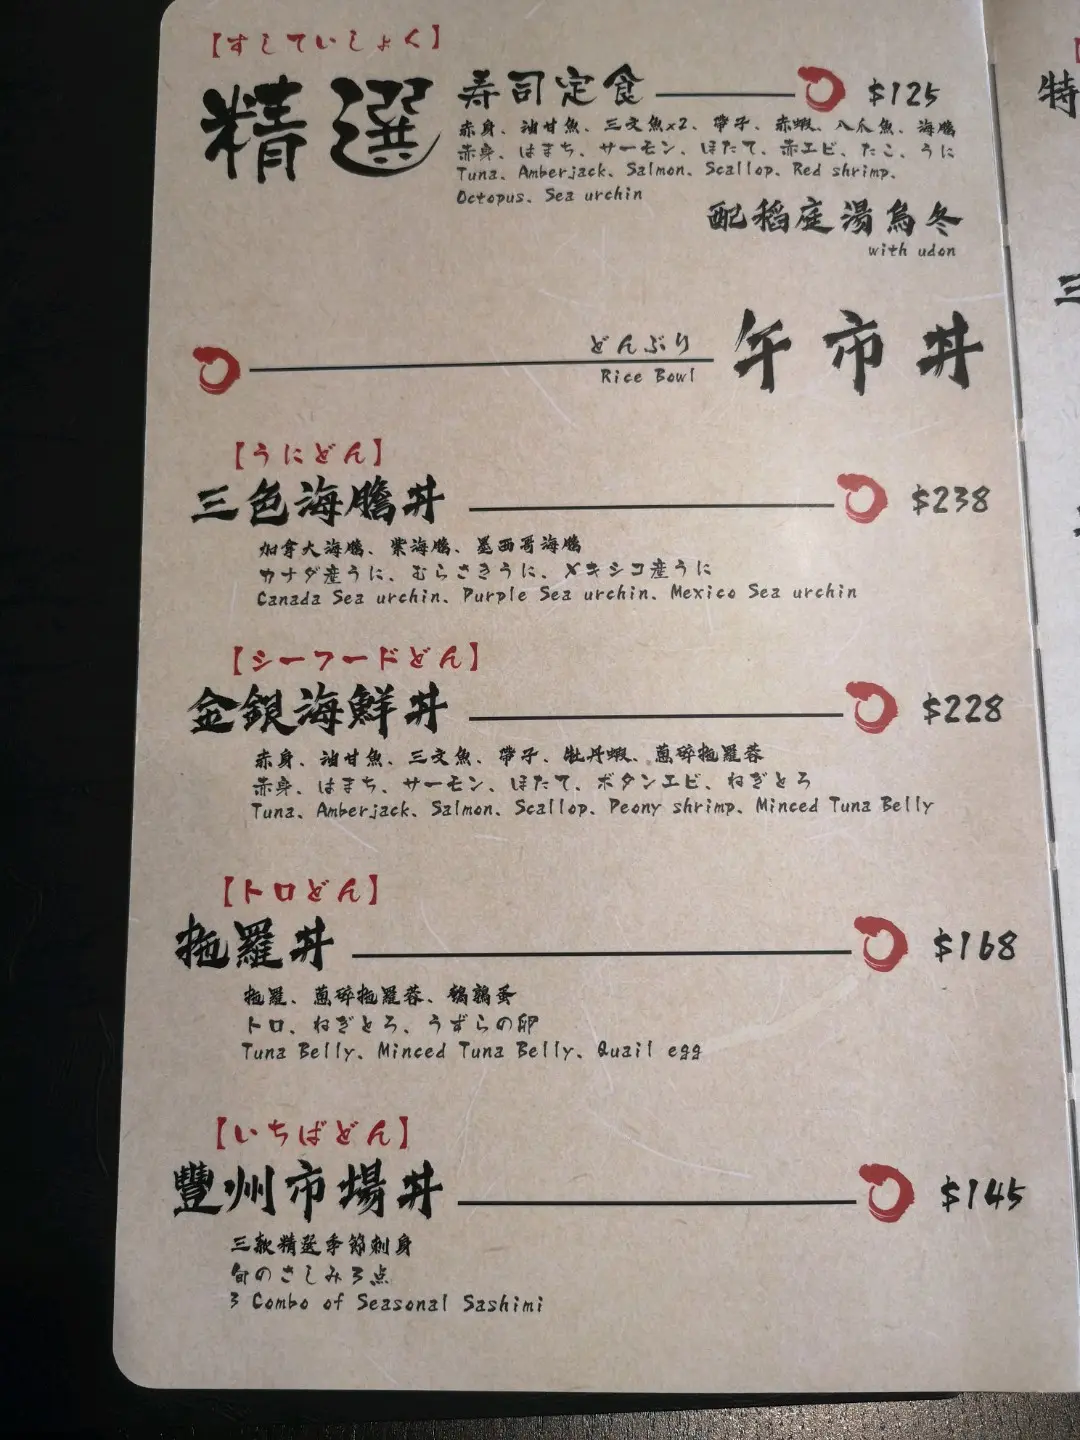 【すしていしょく】
精選 寿司定食 $125
赤身、油甘魚、三文魚x2、帶子、赤蝦、八爪魚、海膽
赤身、はまち、サーモン、ほたて、赤エビ、たこ、うに
Tuna、Amberjack、Salmon、Scallop、Red shrimp、
Octopus、Sea urchin
配稻庭湯烏冬
with udon
どんぶり
Rice Bowl
午市丼
【うにどん】
三色海膽丼 $238
加拿大海膽、紫海膽、墨西哥海膽
カナダ産うに、むらさきうに、メキシコ産うに
Canada Sea urchin、Purple Sea urchin、Mexico Sea urchin
【シーフードどん】
金銀海鮮丼 $228
赤身、油甘魚、三文魚、帶子、牡丹蝦、蔥碎拖羅蓉
赤身、はまち、サーモン、ほたて、ボタンエビ、ねぎとろ
Tuna、Amberjack、Salmon、Scallop、Peony shrimp、Minced Tuna Belly
【トロどん】
拖羅丼 $168
拖羅、蔥碎拖羅蓉、鵪鶉蛋
トロ、ねぎとろ、うずらの卵
Tuna Belly、Minced Tuna Belly、Quail egg
【いちばどん】
豐州市場丼 $145
三款精選季節刺身
旬のさしみ3点
3 Combo of Seasonal Sashimi
特
三